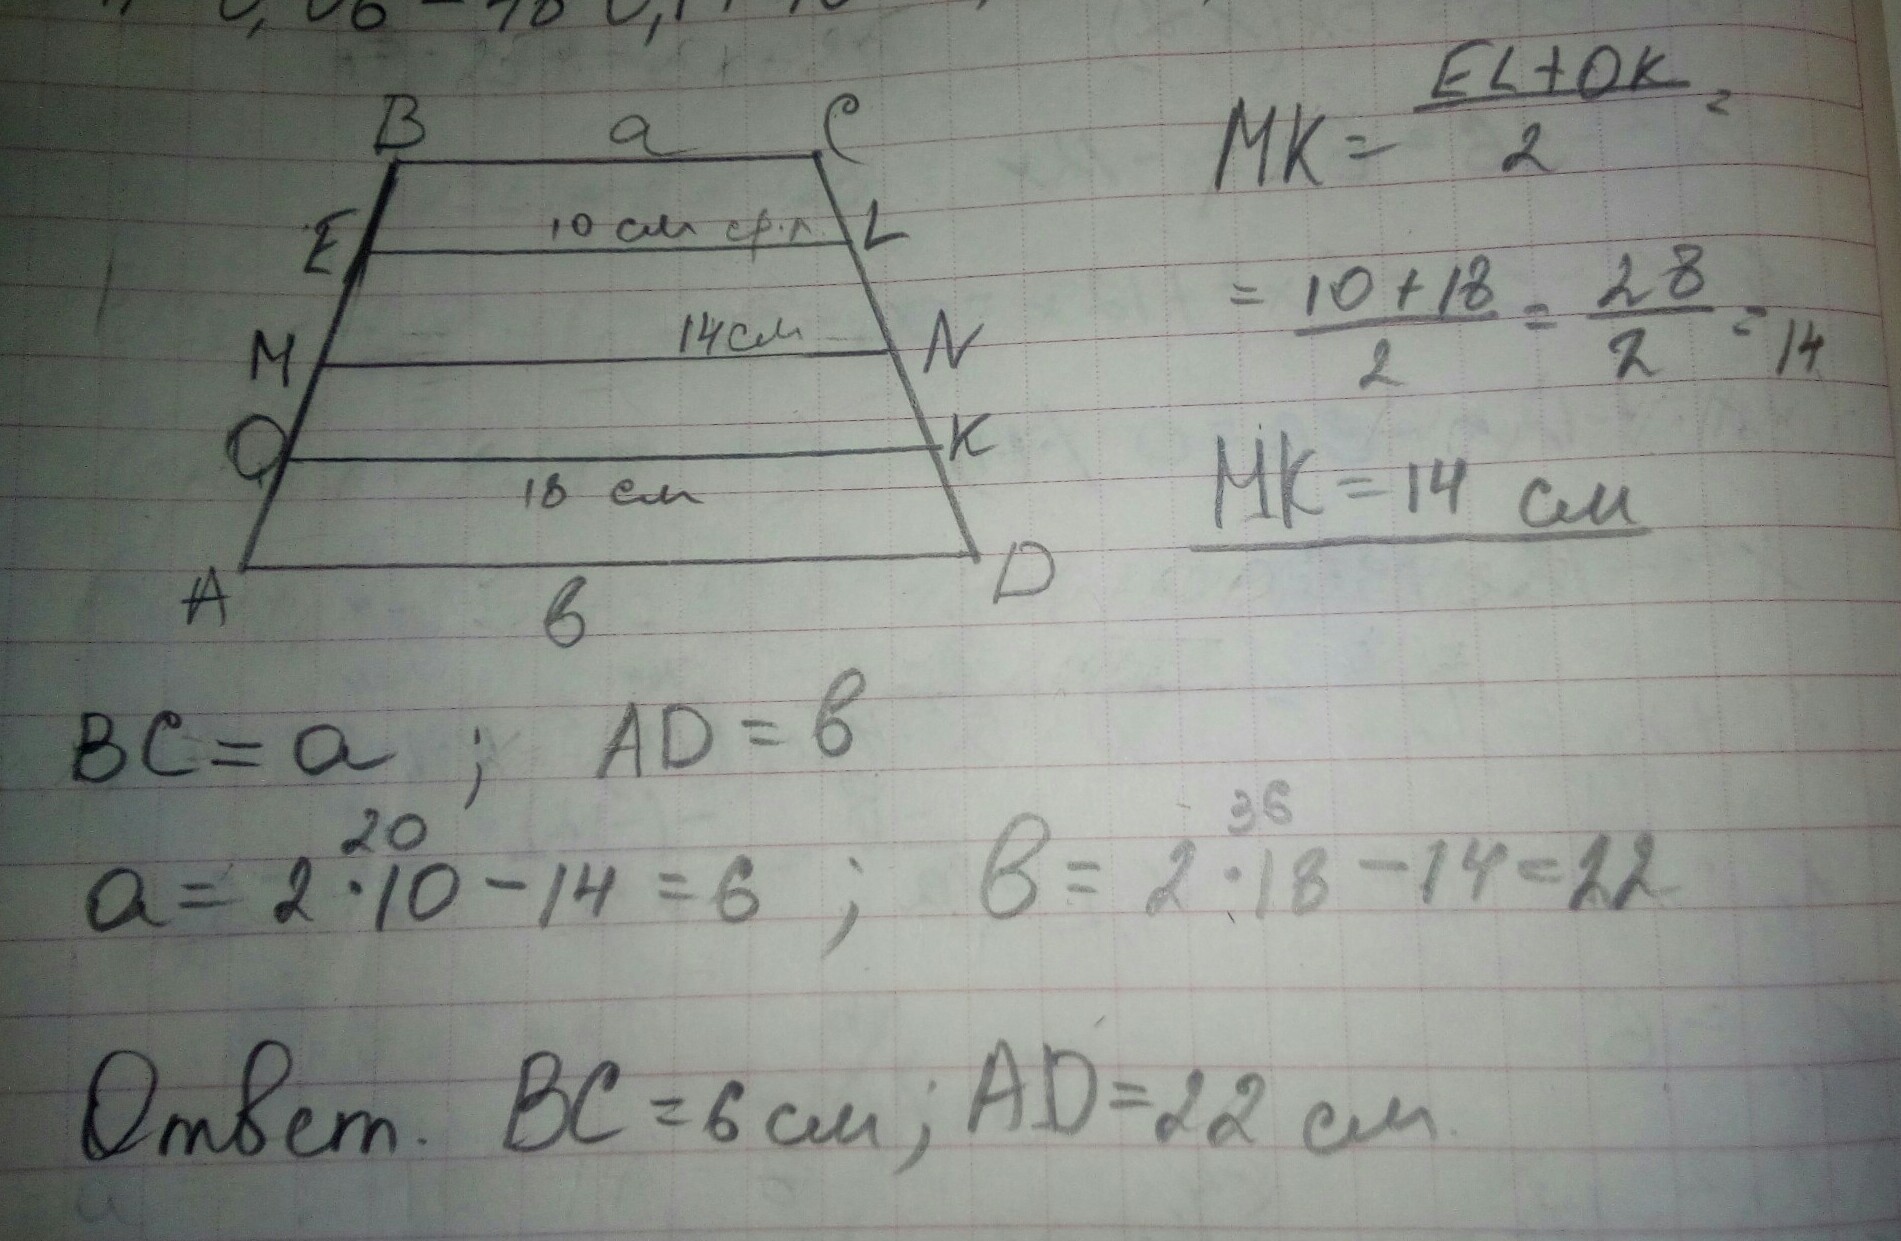 B a C
E 10 см ср.л. L
M 14см N
O K
18 см
A в D
MK = EL+OK / 2 =
= 10+18 / 2 = 28 / 2 = 14
MK = 14 см
BC = a ; AD = в
20 36
a = 2·10 - 14 = 6 ; в = 2·18 - 14 = 22
Ответ. BC = 6 см; AD = 22 см.